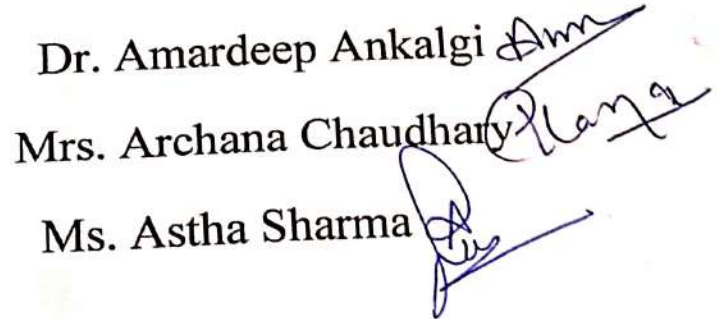 Dr. Amardeep Ankalgi
Mrs. Archana Chaudhary
Ms. Astha Sharma